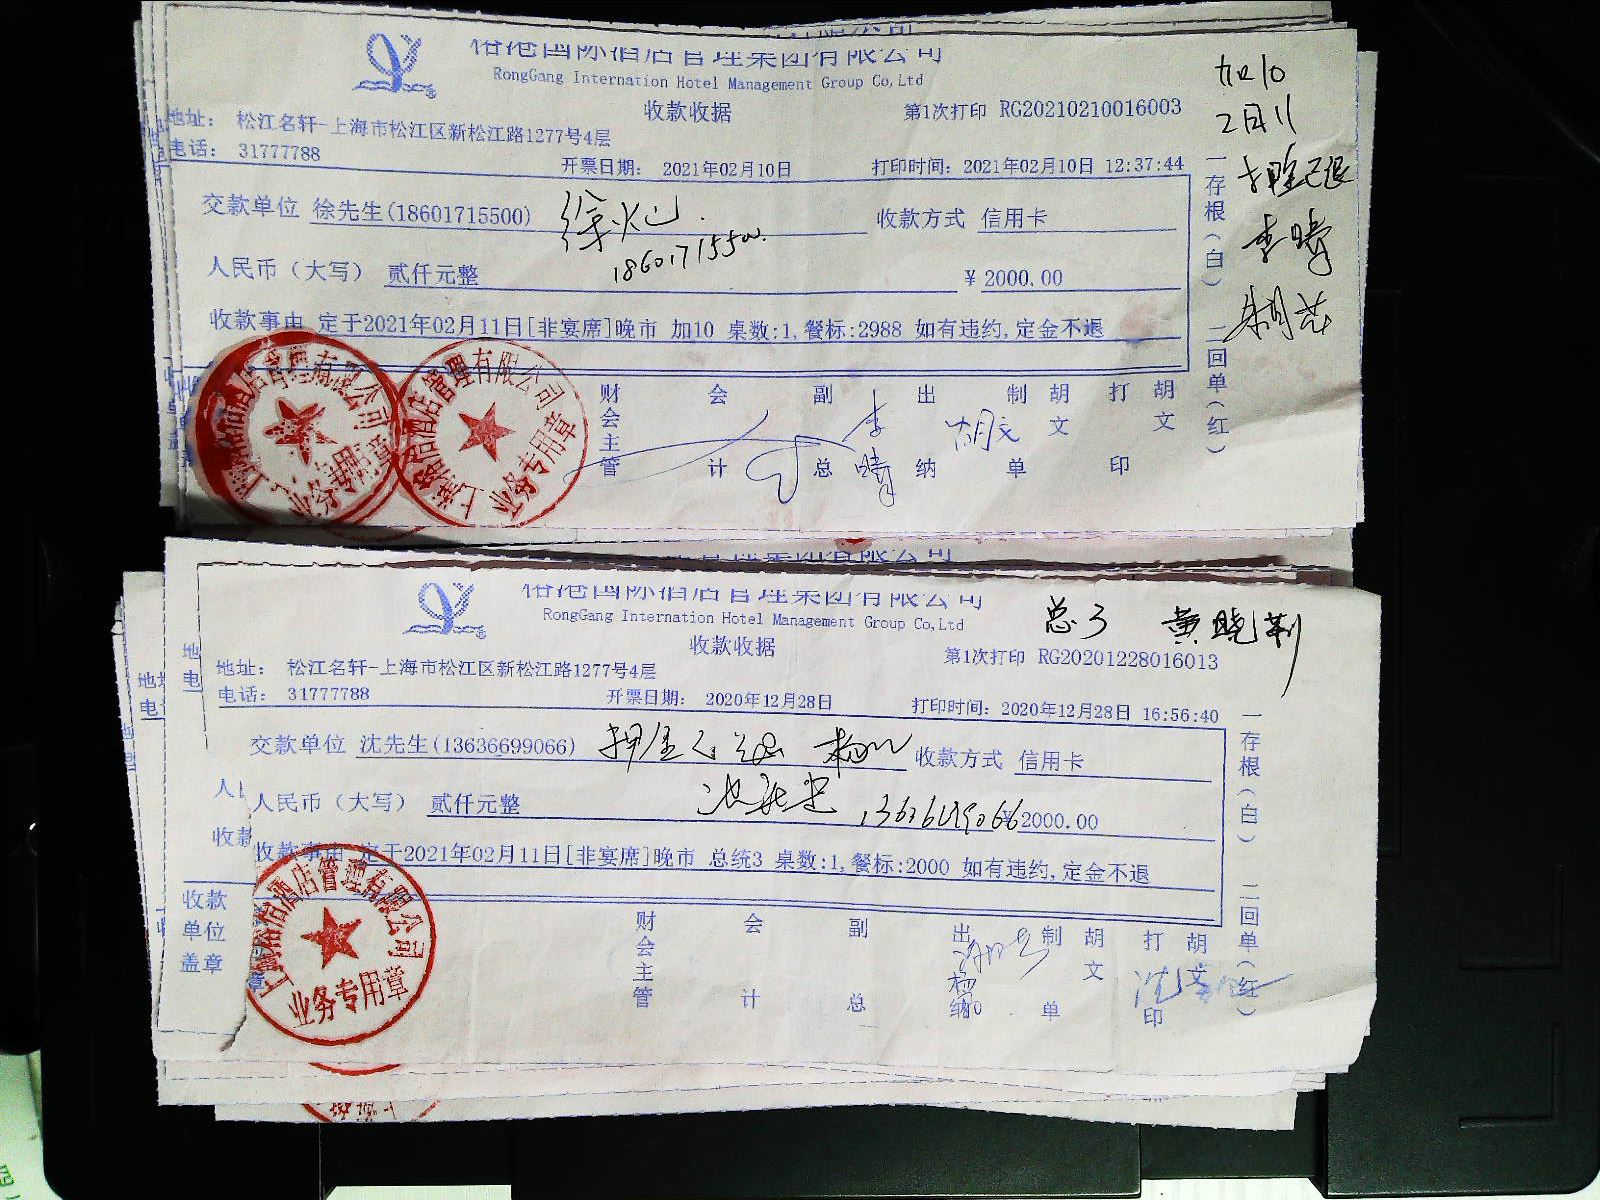 裕港国际酒店管理集团有限公司
RongGang Internation Hotel Management Group Co,Ltd
收款收据
第1次打印 RG20210210016003
地址: 松江名轩-上海市松江区新松江路1277号4层
电话: 31777788
开票日期: 2021年02月10日
打印时间: 2021年02月10日 12:37:44
加10
2月11
押金已退
李晴
交款单位 徐先生(18601715500)
18601715500
收款方式 信用卡
人民币(大写) 贰仟元整
¥2000.00
收款事由 定于2021年02月11日[非宴席]晚市 加10 桌数:1,餐标:2988 如有违约,定金不退
一存根(白) 二回单(红)
财会主管 会计 副总 李晴 出纳 胡文 制单 胡文 打印 胡文
酒店管理有限公司
业务专用章
酒店管理有限公司
业务专用章
裕港国际酒店管理集团有限公司
RongGang Internation Hotel Management Group Co,Ltd
收款收据
总3 黄晓荆
第1次打印 RG20201228016013
地址: 松江名轩-上海市松江区新松江路1277号4层
电话: 31777788
开票日期: 2020年12月28日
打印时间: 2020年12月28日 16:56:40
交款单位 沈先生(13636699066)
押金已退
收款方式 信用卡
人民币(大写) 贰仟元整
13636699066
2000.00
收款事由 定于2021年02月11日[非宴席]晚市 总统3 桌数:1,餐标:2000 如有违约,定金不退
一存根(白) 二回单(红)
收款单位盖章
财会主管 会计 副总 出纳 制单 胡文 打印 胡文
酒店管理有限公司
业务专用章